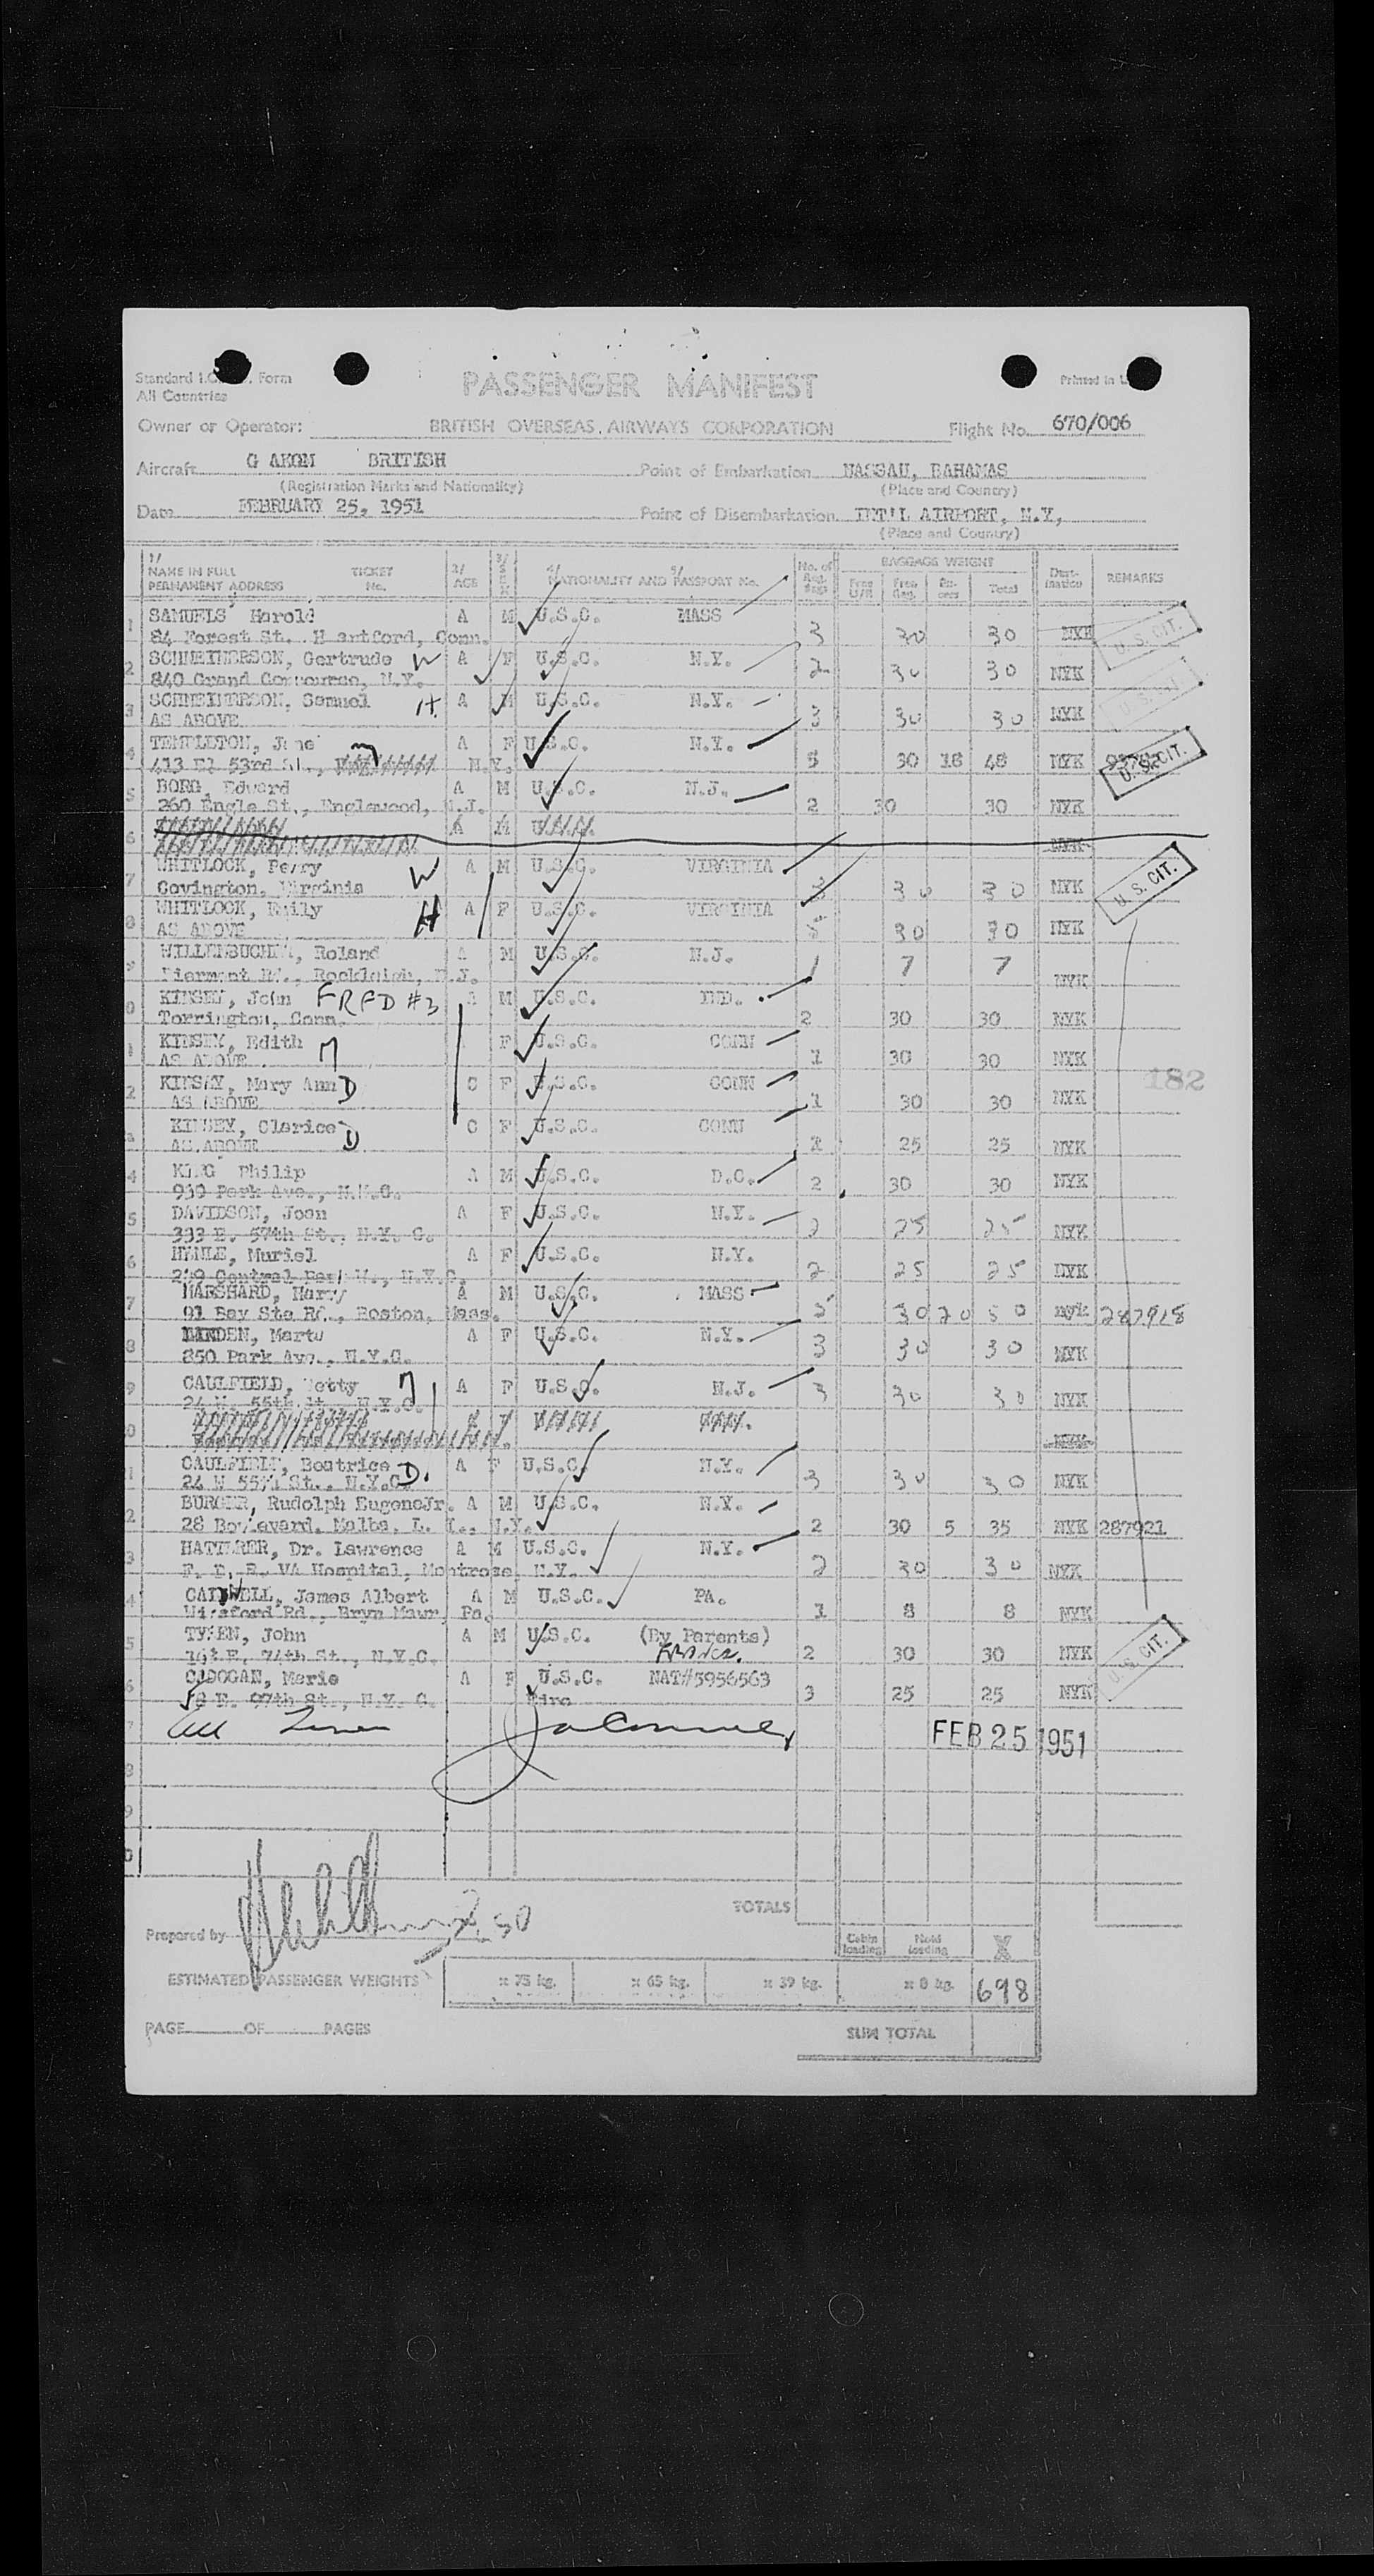 Standard I.C. Form
All Countries
PASSENGER MANIFEST
Printed in
Owner or Operator: BRITISH OVERSEAS AIRWAYS CORPORATION Flight No. 670/006
Aircraft G AKGM BRITISH Point of Embarkation NASSAU, BAHAMAS
(Registration Marks and Nationality) (Place and Country)
Date FEBRUARY 25, 1951 Point of Disembarkation INT'L AIRPORT, N.Y,
(Place and Country)
1/ NAME IN FULL PERMANENT ADDRESS TICKET No. 2/ AGE 3/ SEX 4/ NATIONALITY AND PASSPORT No. No. of Reg. Bags BAGGAGE WEIGHT Free Total Destination REMARKS
1 SAMUELS Harold A M U.S.C. MASS
84 Forest St. Hartford, Conn. 3 30 30 NYK U. S. CIT.
2 Gertrude W A F U.S.C. N.Y.
840 Grand Concourse, N.Y. 2 30 30 NYK
3 Samuel H A M U.S.C. N.Y.
AS ABOVE 3 30 30 NYK
4 TEMPLETON, Jane m A F U.S.C. N.Y.
413 E 53rd St., N.Y. 5 30 18 48 NYK U. S. CIT.
5 BORG, Edward A M U.S.C. N.J.
260 Engle St., Englewood, N.J. 2 30 30 NYK
6 A M NYK
7 WHITLOCK, Perry W A M U.S.C. VIRGINIA
Covington, Virginia 3 30 30 NYK U. S. CIT.
8 WHITLOCK, Emily H A F U.S.C. VIRGINIA
AS ABOVE 5 30 30 NYK
9 Roland A M U.S.C. N.J.
Piermont Rd., Rockleigh, N.J. 1 7 7 NYK
0 KINSEY, John FRED #3 A M U.S.C. IND.
Torrington, Conn. 2 30 30 NYK
1 KINSEY, Edith M F U.S.C. CONN
AS ABOVE 1 30 30 NYK
2 KINSEY, Mary Ann D C F U.S.C. CONN
AS ABOVE 1 30 30 NYK
182
3 KINSEY, Clarice D C F U.S.C. CONN
AS ABOVE 1 25 25 NYK
4 KING Philip A M U.S.C. D.C.
930 Park Ave., N.Y.C. 2 30 30 NYK
5 DAVIDSON, Joan A F U.S.C. N.Y.
333 E. 57th St., N.Y. C. 2 25 25 NYK
6 Muriel A F U.S.C. N.Y.
Central Park W., N.Y.C. 2 25 25 NYK
7 HARSHARD, Harry A M U.S.C. MASS
91 Bay Sta Rd., Boston, Mass. 5 30 20 50 NYK 287918
8 LINDEN, Marty A F U.S.C. N.Y.
850 Park Ave., N.Y.C. 3 30 30 NYK
9 CAULFIELD, Betty M A F U.S.C. N.J.
24 W. 55th St., N.Y.C. 3 30 30 NYK
0 NYK
1 CAULFIELD, Beatrice D. A F U.S.C. N.Y.
24 W 55th St., N.Y.C. 3 30 30 NYK
2 BURGER, Rudolph EugeneJr. A M U.S.C. N.Y.
28 Boulevard, Malba, L. I., N.Y. 2 30 5 35 NYK 287921
3 HATTERER, Dr. Lawrence A M U.S.C. N.Y.
F. D. R. VA Hospital, Montrose, N.Y. 2 30 30 NYK
4 CALDWELL, James Albert A M U.S.C. PA.
Rd., Bryn Mawr, Pa. 1 8 8 NYK
5 John A M U.S.C. (By Parents)
E. 74th St., N.Y.C. FRANCE. 2 30 30 NYK U. S. CIT.
6 CADOGAN, Marie A F U.S.C. NAT#5956563
58 E. 97th St., N.Y. C. Eire 3 25 25 NYK
7 FEB 25 1951
8
9
0
TOTALS
Prepared by
Cabin loading Hold loading X
ESTIMATED PASSENGER WEIGHTS x 75 kg. x 65 kg. x 39 kg. x 8 kg. 698
PAGE OF PAGES
SUM TOTAL